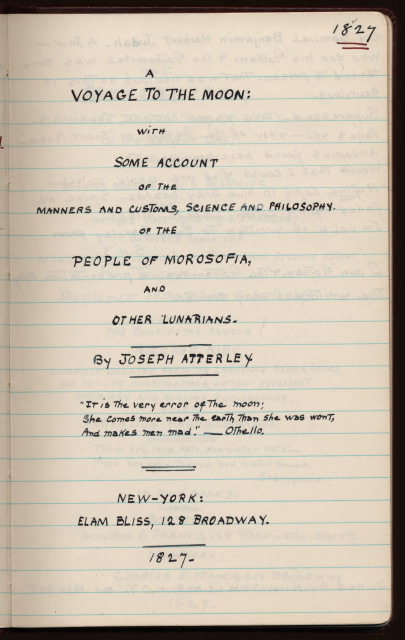 1827
A
VOYAGE TO THE MOON:
WITH
SOME ACCOUNT
OF THE
MANNERS AND CUSTOMS, SCIENCE AND PHILOSOPHY.
OF THE
PEOPLE OF MOROSOFIA,
AND
OTHER LUNARIANS.
By JOSEPH ATTERLEY
"It is the very error of the moon;
She comes more near the earth than she was wont,
And makes men mad!" — Othello.
NEW-YORK:
ELAM BLISS, 128 BROADWAY.
1827-